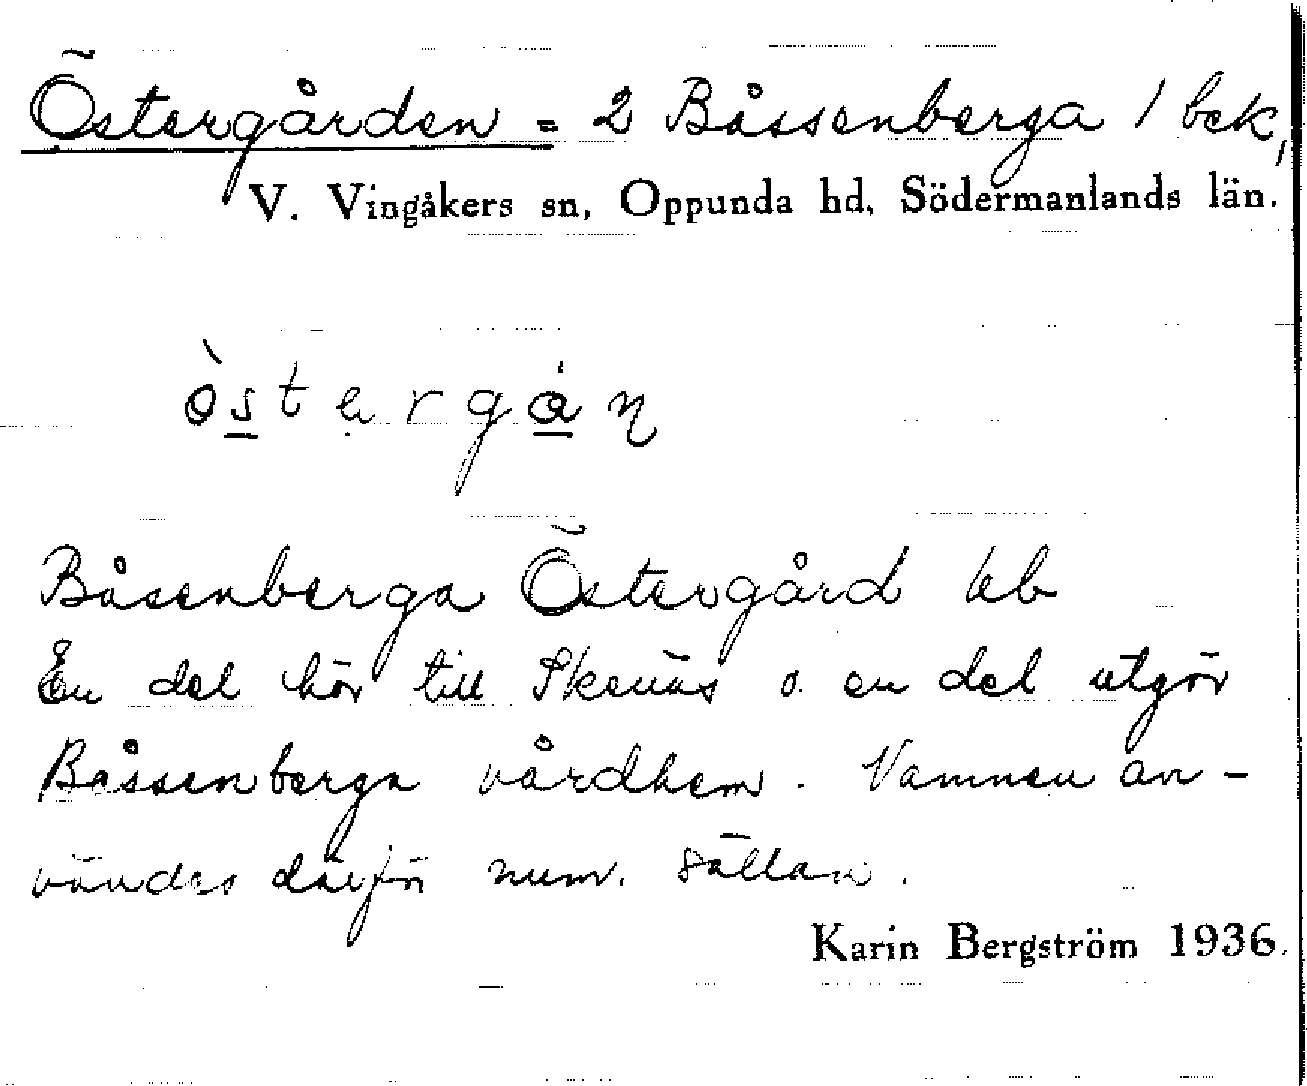 Östergården = 2 Båssenberga 1 bek,
V. Vingåkers sn, Oppunda hd, Södermanlands län.
òstergán
Båsenberga Östergård kb
En del hör till Skenäs o. en del utgör
Båssenberga vårdhem. Namnen an-
vändes därför num. sällan.
Karin Bergström 1936.